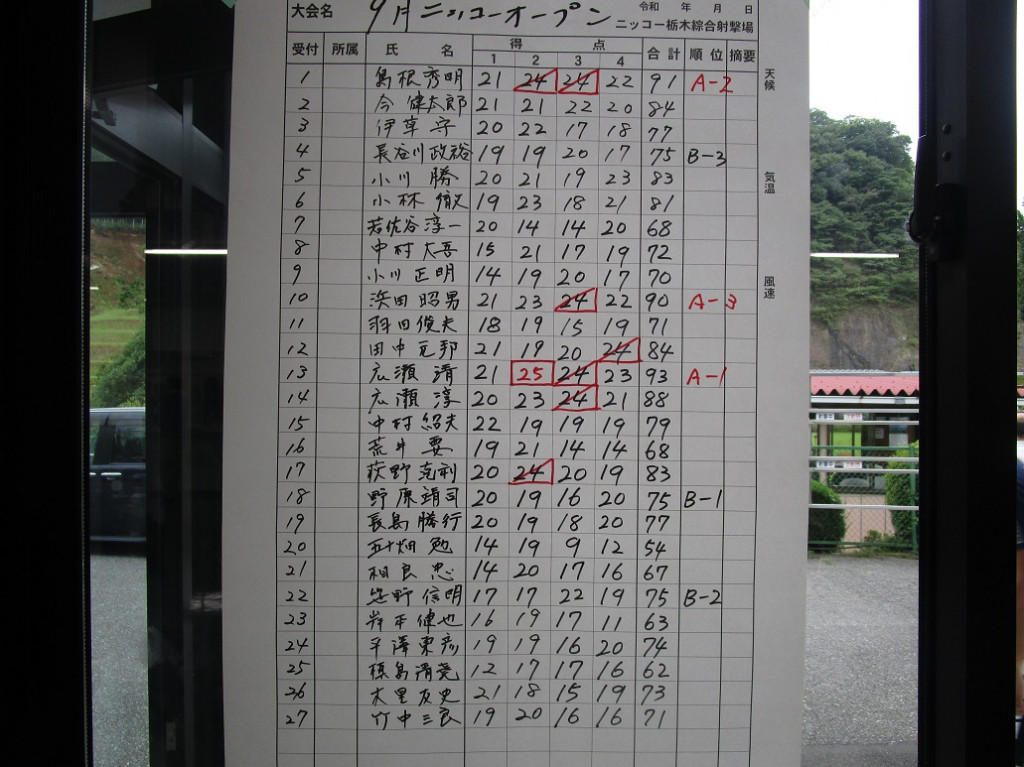 大会名 9月ニッコーオープン 令和 年 月 日
ニッコー栃木綜合射撃場
受付 所属 氏名 得点 合計 順位 摘要
1 2 3 4
天候
気温
風速
1 島根秀明 21 24 24 22 91 A-2
2 今健太郎 21 21 22 20 84
3 伊草守 20 22 17 18 77
4 長谷川政裕 19 19 20 17 75 B-3
5 小川勝 20 21 19 23 83
6 小林徹 19 23 18 21 81
7 若佐谷淳一 20 14 14 20 68
8 中村大吾 15 21 17 19 72
9 小川正明 14 19 20 17 70
10 浜田昭男 21 23 24 22 90 A-3
11 羽田俊夫 18 19 15 19 71
12 田中元邦 21 19 20 24 84
13 広瀬清 21 25 24 23 93 A-1
14 広瀬淳 20 23 24 21 88
15 中村紹夫 22 19 19 19 79
16 荒井要 19 21 14 14 68
17 荻野克利 20 24 20 19 83
18 野原靖司 20 19 16 20 75 B-1
19 長島勝行 20 19 18 20 77
20 五十畑勉 14 19 9 12 54
21 相良忠 14 20 17 16 67
22 野信明 17 17 22 19 75 B-2
23 岸本健也 16 19 17 11 63
24 平澤東彦 19 19 16 20 74
25 島清 12 17 17 16 62
26 大里友史 21 18 15 19 73
27 竹中三良 19 20 16 16 71